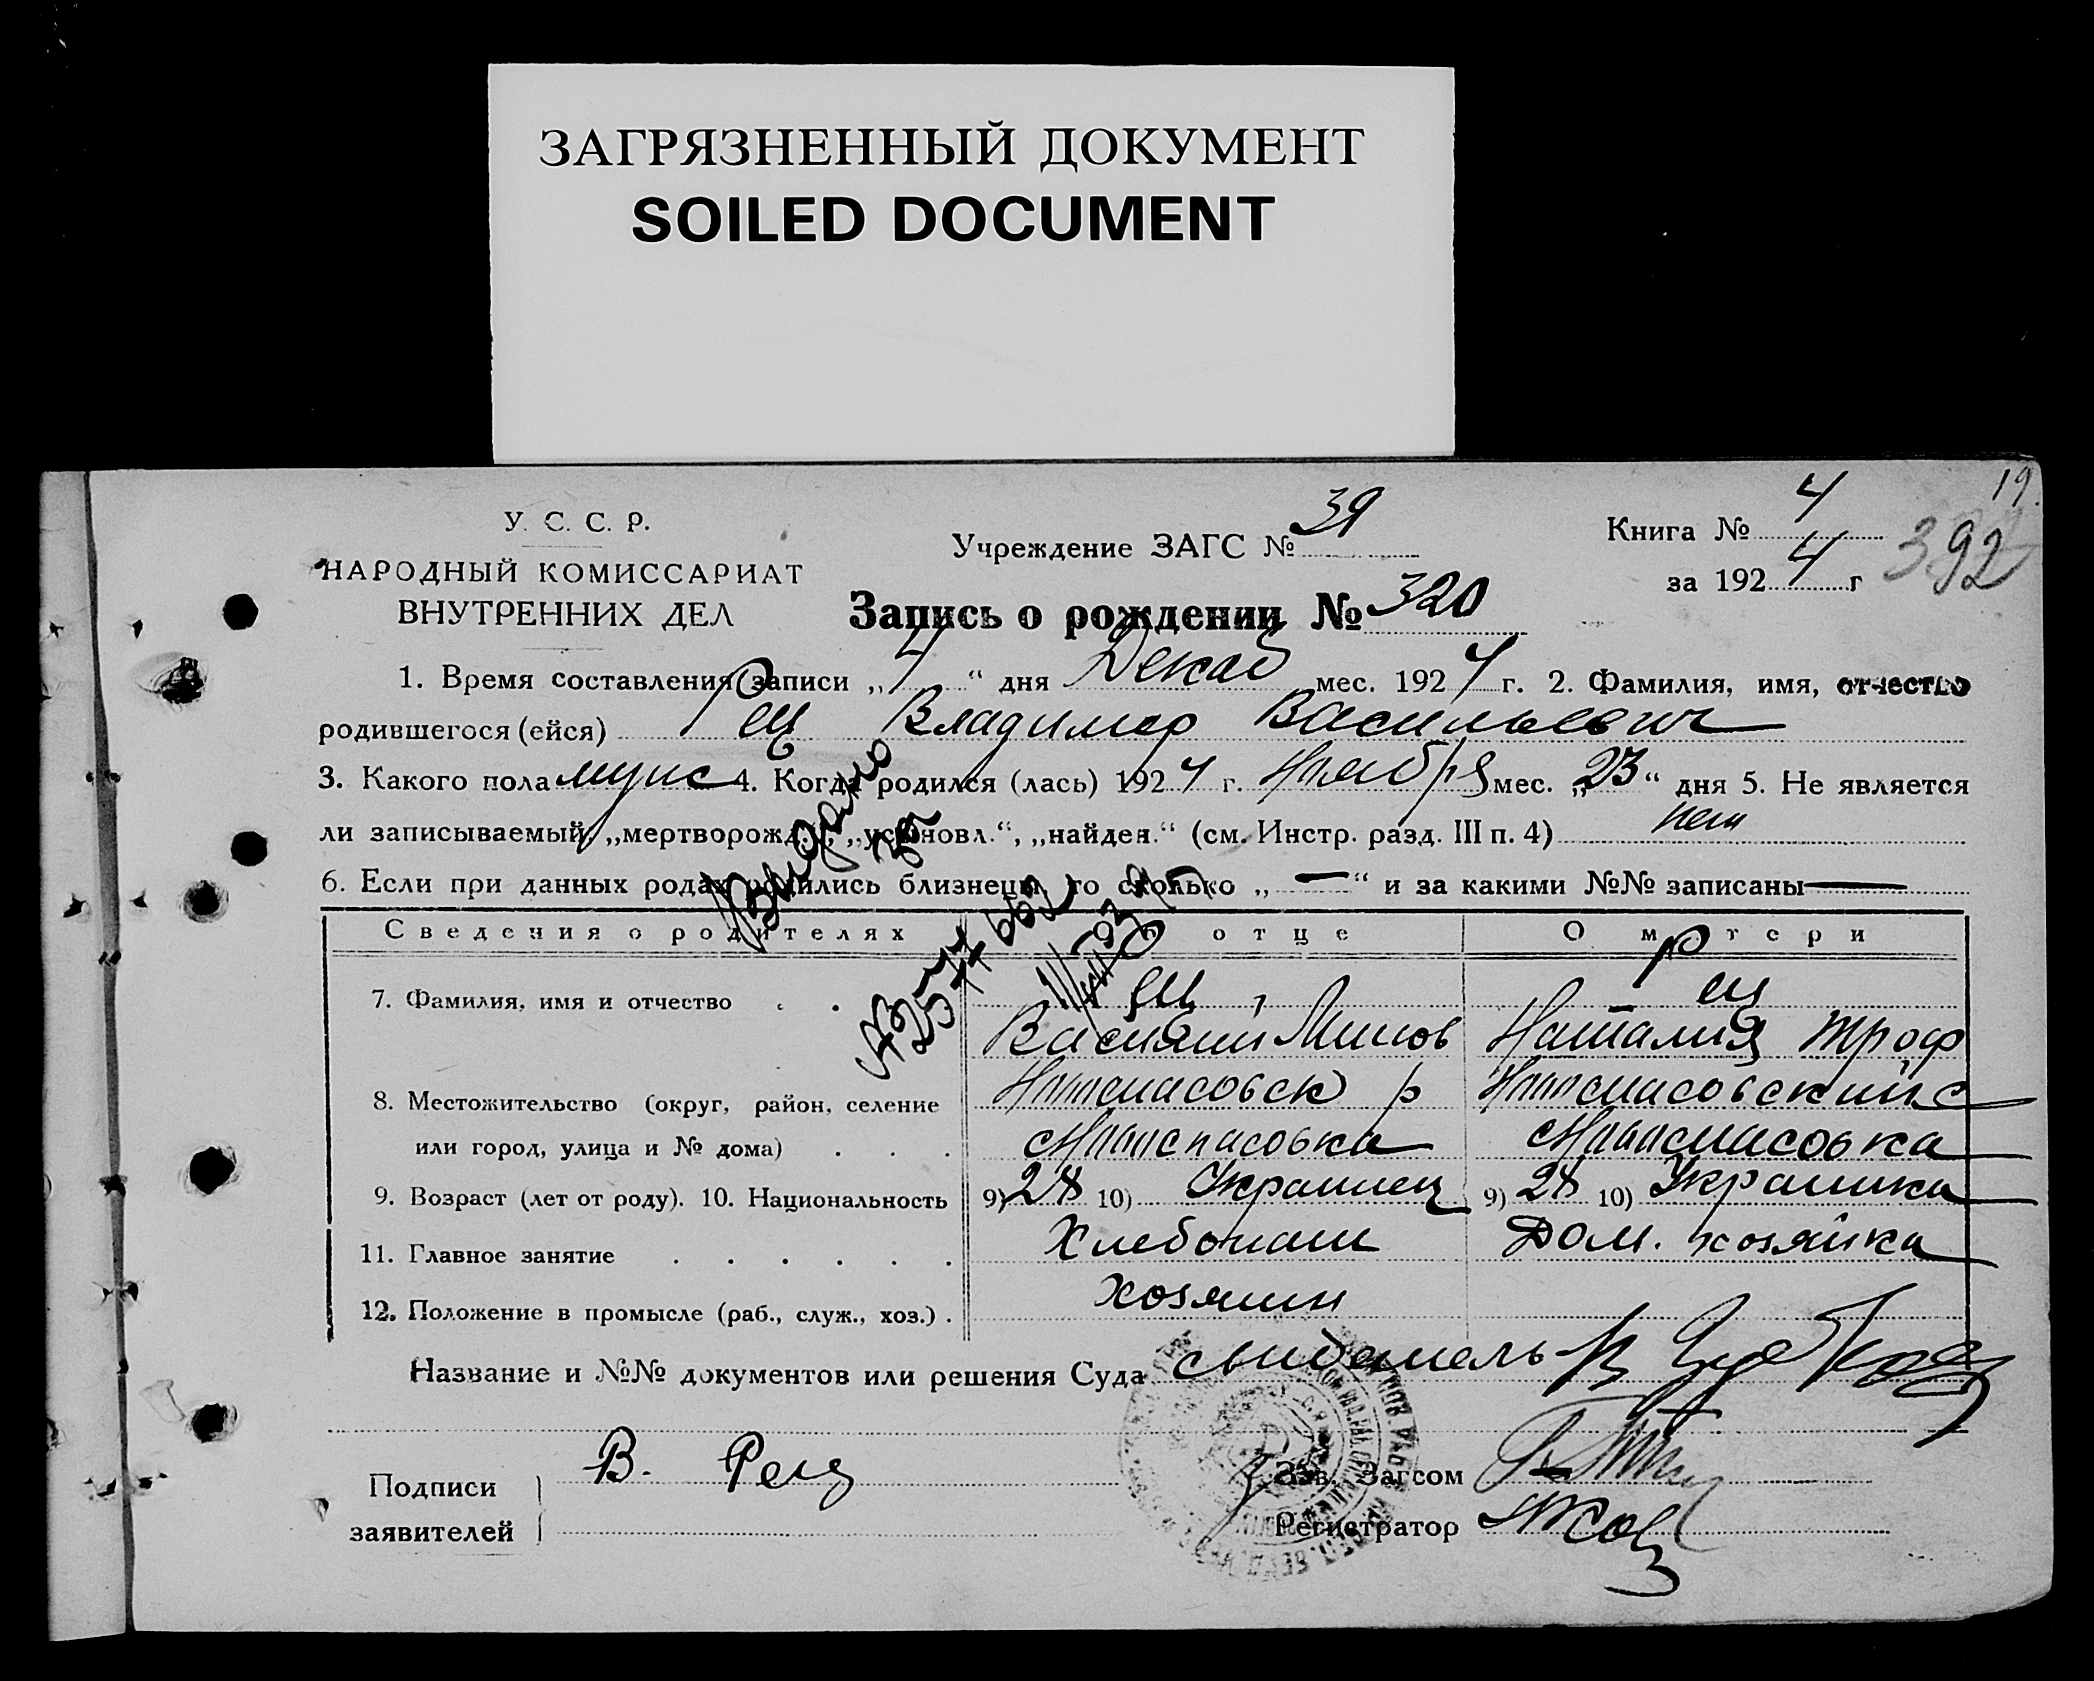 ЗАГРЯЗНЕННЫЙ ДОКУМЕНТ
SOILED DOCUMENT
19
У. С. С. Р.
НАРОДНЫЙ КОМИССАРИАТ
ВНУТРЕННИХ ДЕЛ
Учреждение ЗАГС № 39
Книга № 4
за 192 4 г
392
Запись о рождении № 320
1. Время составления записи „ 4 “ дня Декаб мес. 192 4 г. 2. Фамилия, имя, отчество
родившегося (ейся) Рец Владимер Васильевич
3. Какого пола мужс 4. Когда родился (лась) 192 4 г. Ноября мес. „ 23 “ дня 5. Не является
ли записываемый, „мертворожд.“, „усыновл.“, „найден.“ (см. Инстр. разд. III п. 4) нет
6. Если при данных родах родились близнецы, то сколько „ — “ и за какими №№ записаны —
Выдано
Сведения о родителях
О отце
О матери
7. Фамилия, имя и отчество
Рец
Василий
Рец
Наталия Троф
8. Местожительство (округ, район, селение
или город, улица и № дома)
9. Возраст (лет от роду). 10. Национальность
9) 28 10) Украинец
9) 28 10) Украинка
11. Главное занятие
Хлебопаш
Дом. хозяйка
12. Положение в промысле (раб., служ., хоз.)
хозяин
Название и №№ документов или решения Суда
Подписи
заявителей
В. Рец
Зав. Загсом
Регистратор